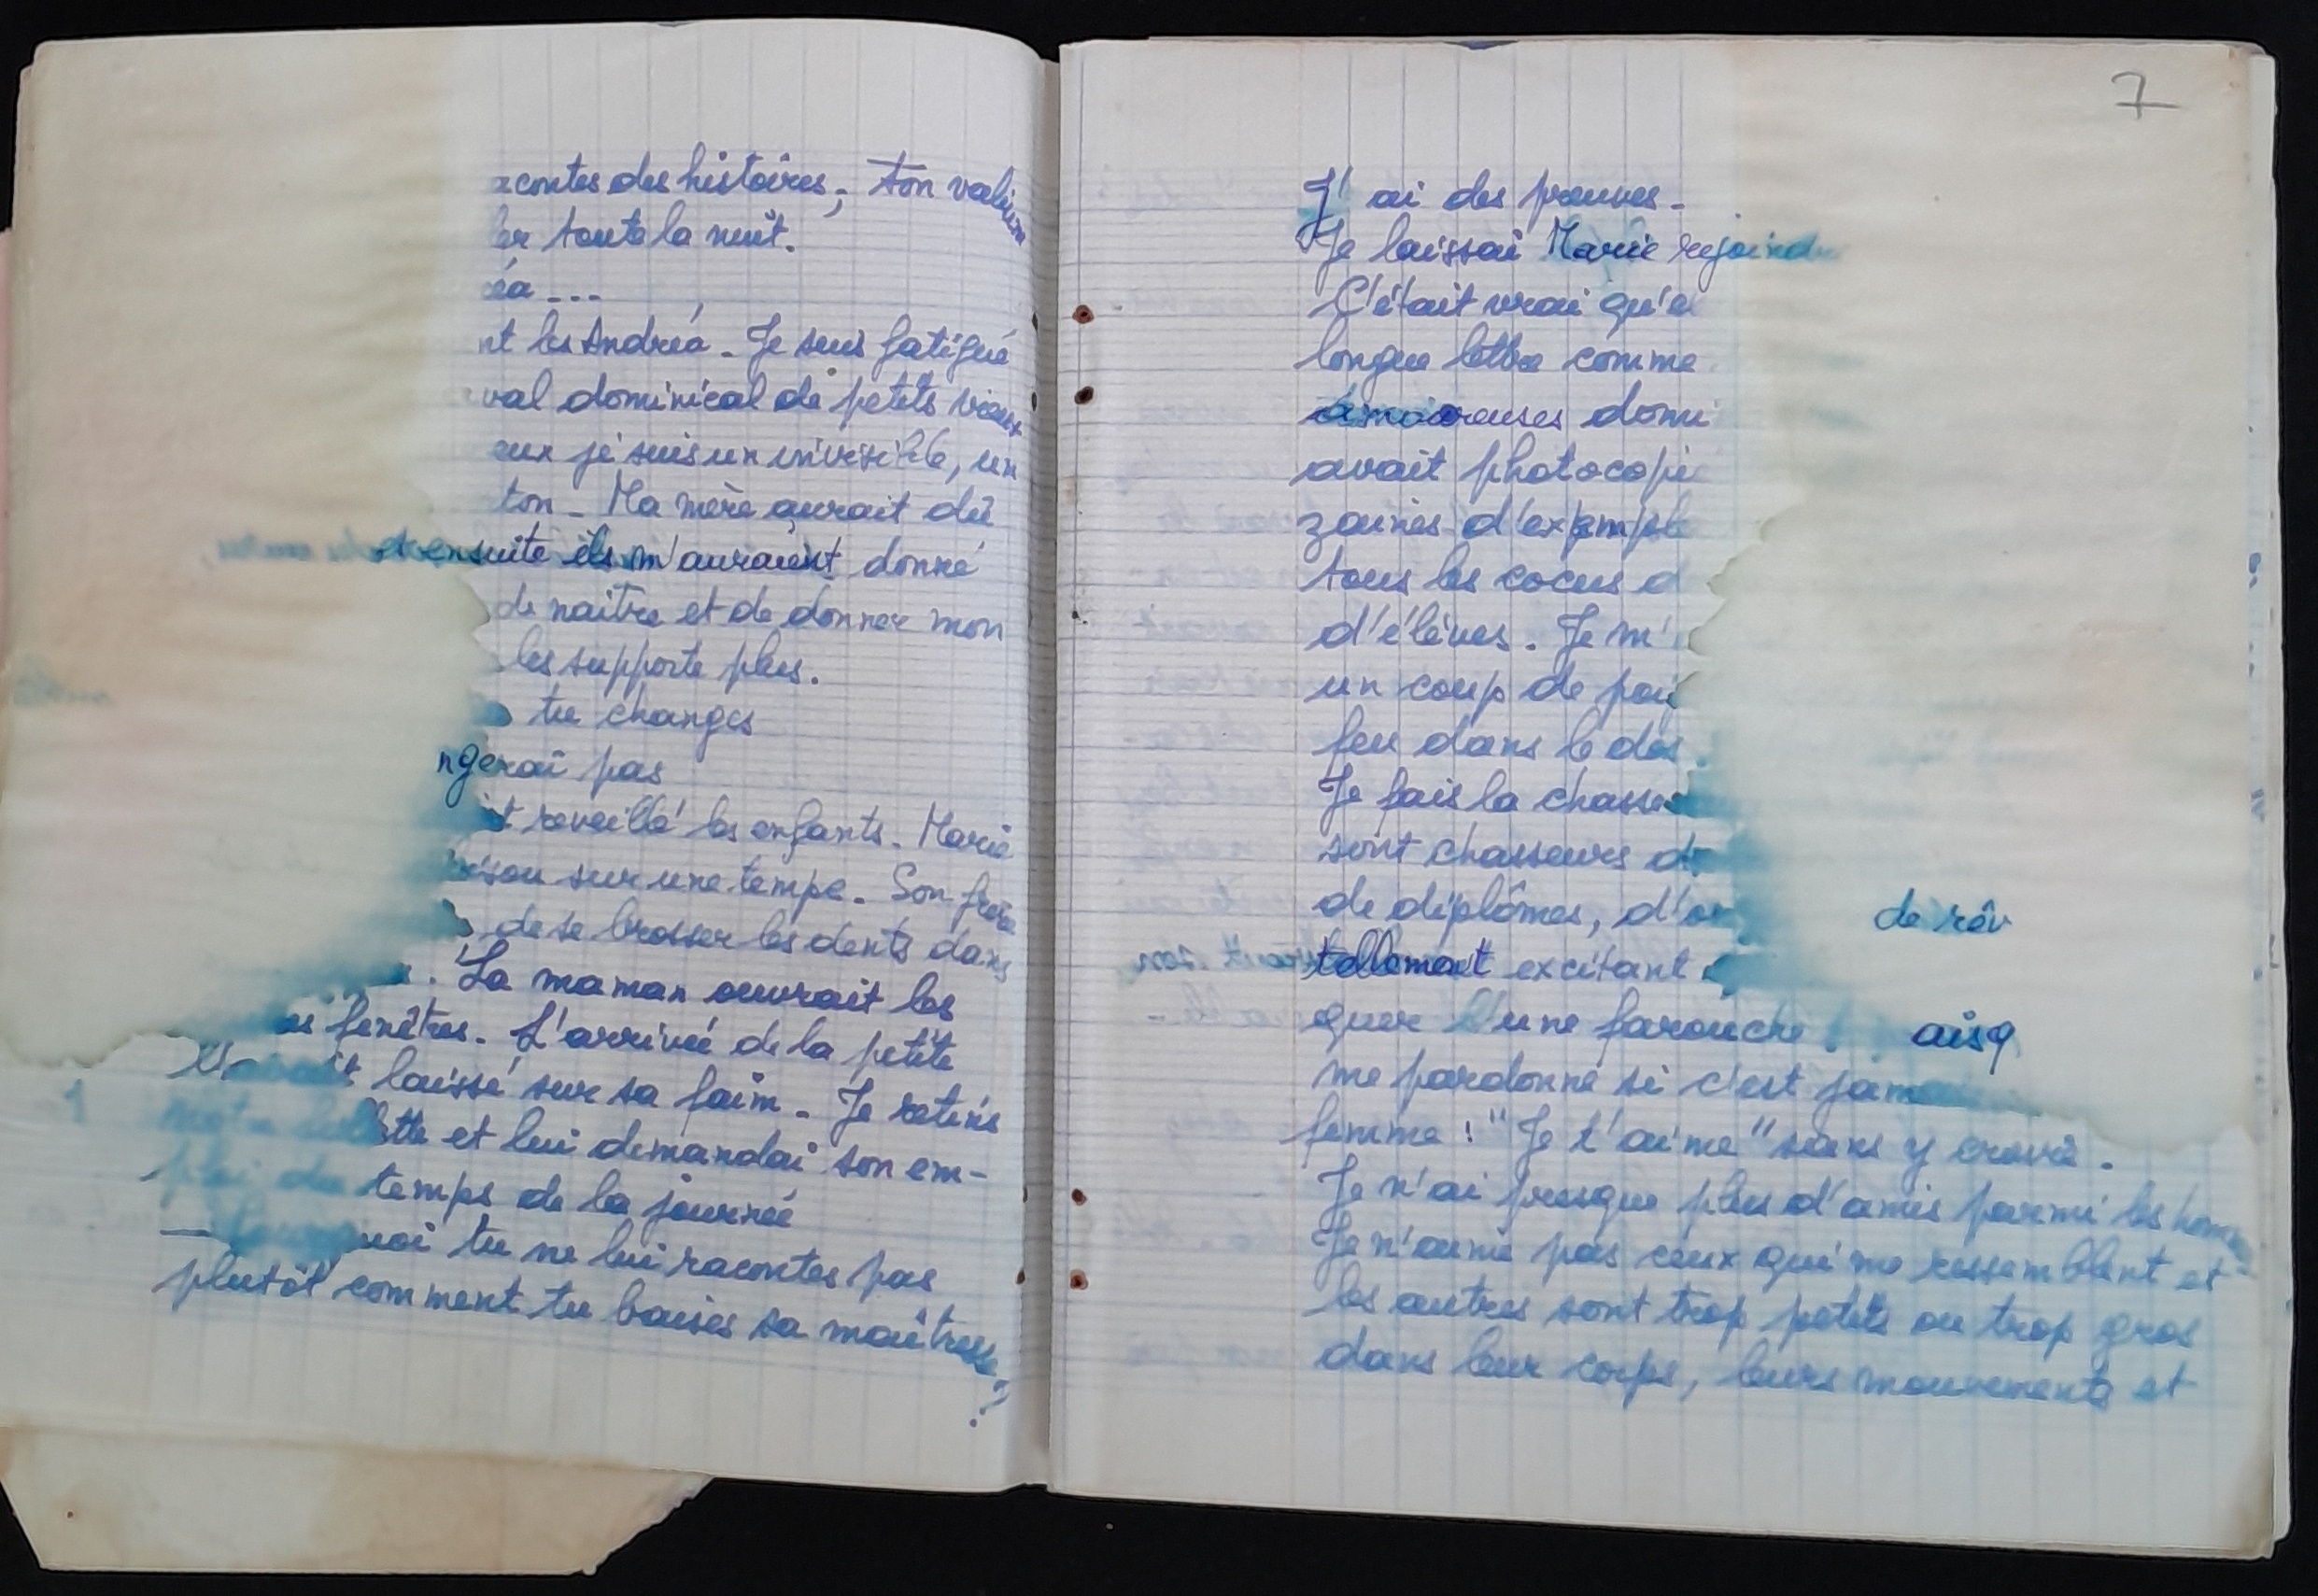 acontes des histoires; ton valium
ler toute la nuit.
éa ---
nt les Andréa. Je suis fatigué
val dominical de petits vieux
eux je suis un invisible, un
ton. Ma mère aurait dû
et ensuite ils m'auraient donné
de naître et de donner mon
les supporte plus.
tu changes
ngerai pas
it reveillé les enfants. Marie
sur une tempe. Son frère
de se brosser les dents dans
. La maman ouvrait les
es fenêtres. L'arrivée de la petite
laissé sur sa faim. Je retins
ette et lui demandai son em-
ploi du temps de la journée
— Pourquoi tu ne lui racontes pas
plutôt comment tu baises sa maîtresse?
7
J'ai des preuves.
Je laissai Marie rejoindre
C'était vrai qu'e
longue lettre comme
amoureuses domi
avait photocopié
zaines d'exemple
tous les cocus d
d'élèves. Je m'
un coup de poig
feu dans le dos.
Je fais la chasse
sont chasseurs de
de diplômes, d'or de rêv
tellement excitant
quer l'une farouche! aisq
me pardonne si c'est jama
femme! "Je t'aime" sans y croire.
Je n'ai presque plus d'amis parmi les hom
Je n'aime pas ceux qui me ressemblent et
les autres sont trop petits ou trop gros
dans leur corps, leurs mouvements et